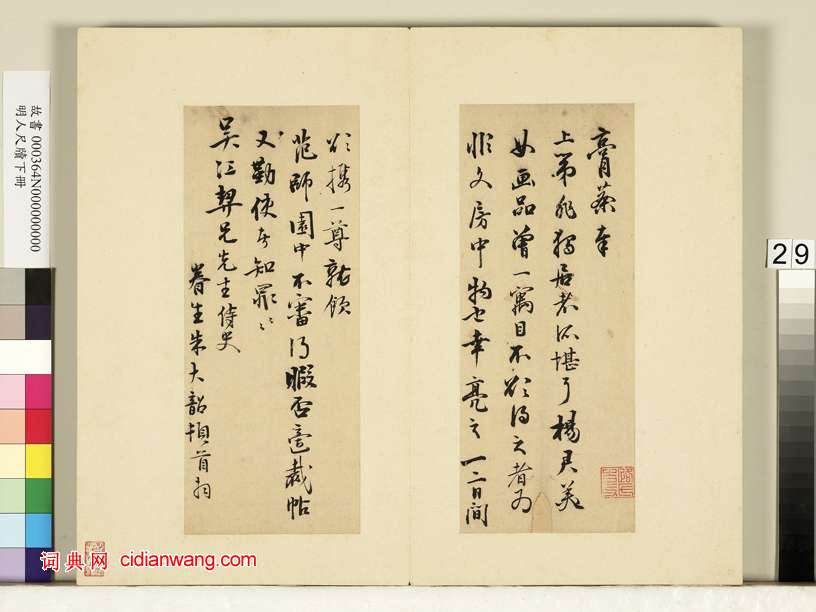 膏药奉
上第非独居者所堪了楊君美
女画品曾一寓目不欲得之者為
非文房中物也幸亮之一二日間
欲携一尊就領
范師園中不審得暇否當裁帖
又勤使者知罪〻
吴江契兄先生侍史
眷生朱大韶頓首
故書 000364N000000000
明人尺牘下冊
29
词典网 cidianwang.com